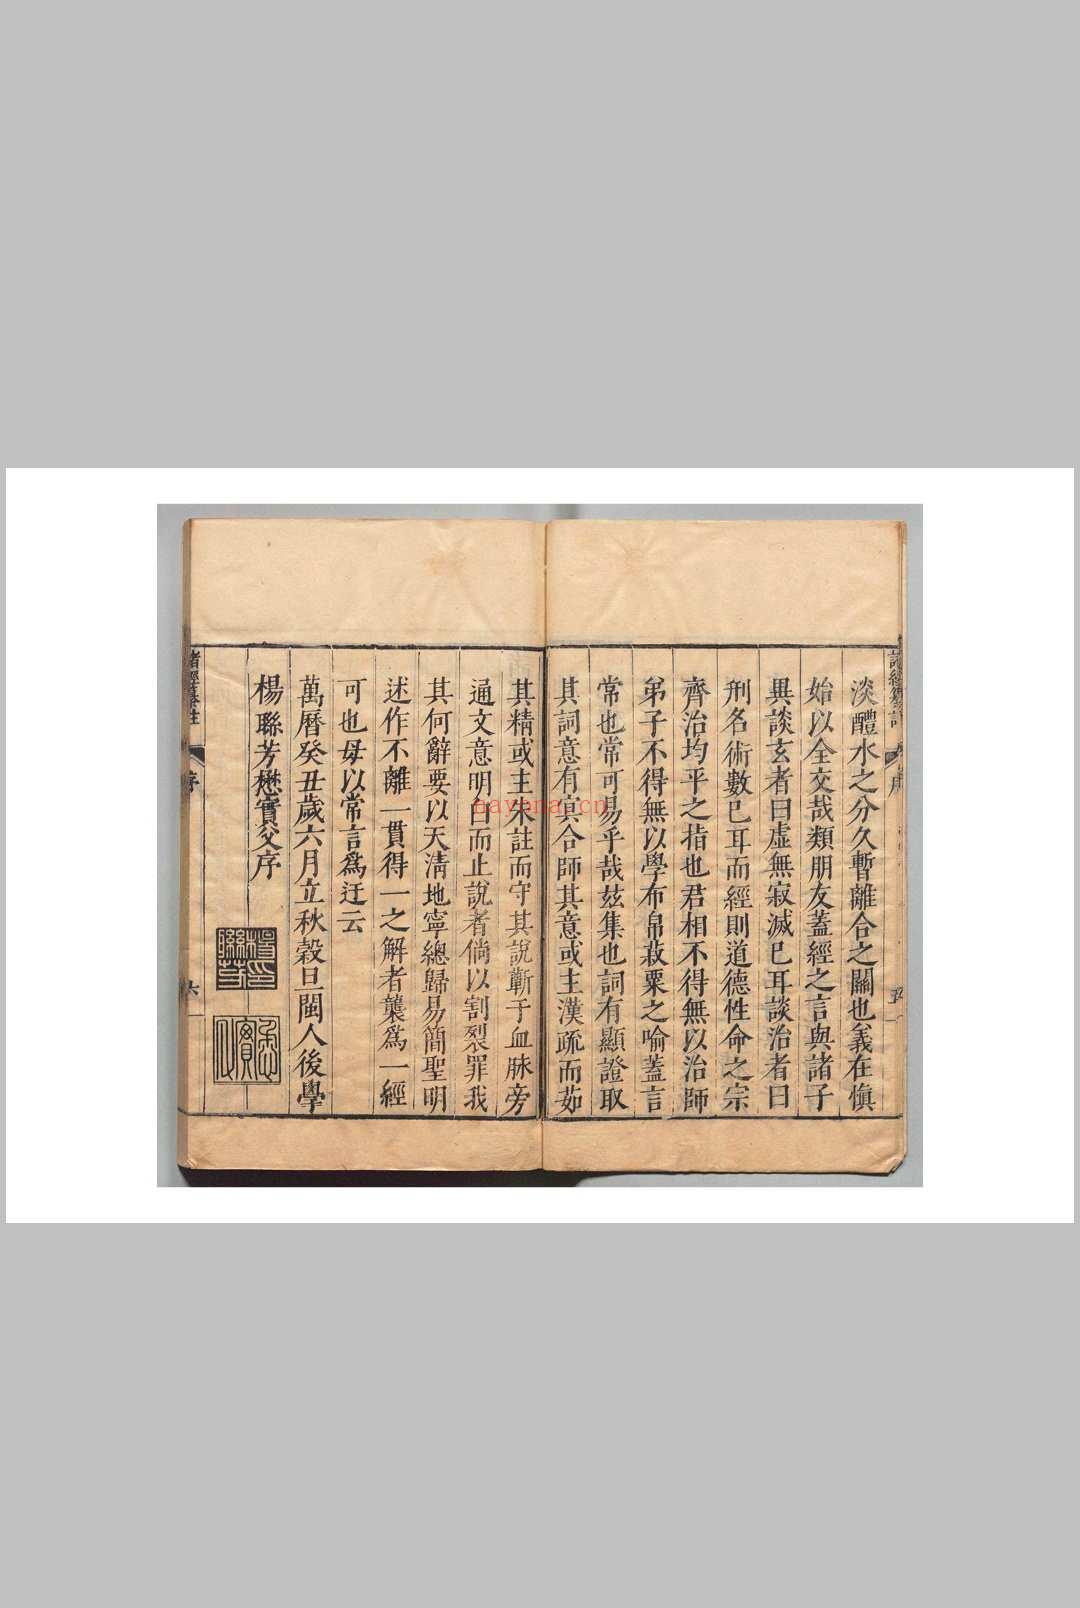 淡醴水之分久暫離合之關也義在愼
始以全交哉類朋友蓋經之言與諸子
異談玄者曰虛無寂滅已耳談治者曰
刑名術數已耳而經則道德性命之宗
齊治均平之指也君相不得無以治師
弟子不得無以學布帛菽粟之喻蓋言
常也常可易乎哉兹集也詞有顯證取
其詞意有真合師其意或主漢疏而茹
其精或主宋註而守其說蘄于血脉旁
通文意明白而止說者倘以割裂罪我
其何辭要以天清地寧總歸易簡聖明
述作不離一貫得一之解者襲爲一經
可也毋以常言爲迂云
萬曆癸丑歲六月立秋穀旦閩人後學
楊聯芳懋實父序
諸經纂註
序
五
諸經纂註
序
六
nayona.cn